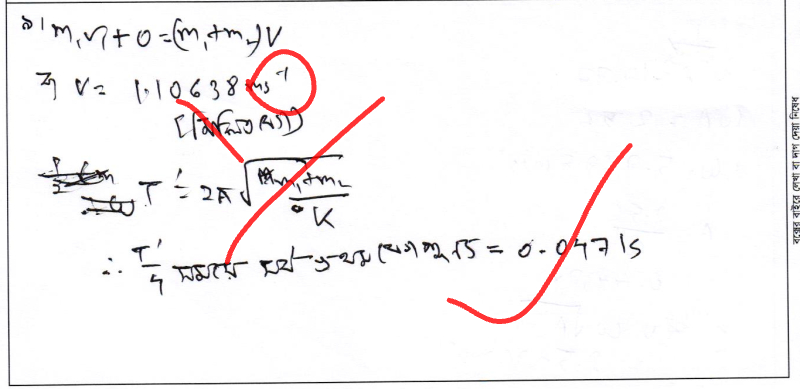 ৯। m₁v₁ + 0 = (m₁+m₂)V
বা, V = 1.10638 ms⁻¹
(মিলিত বেগ)
T' = 2π√((m₁+m₂)/K)
∴ T'/4 সময়ে = 0.0471s
বক্সের বাইরে লেখা বা দাগ দেয়া নিষেধ